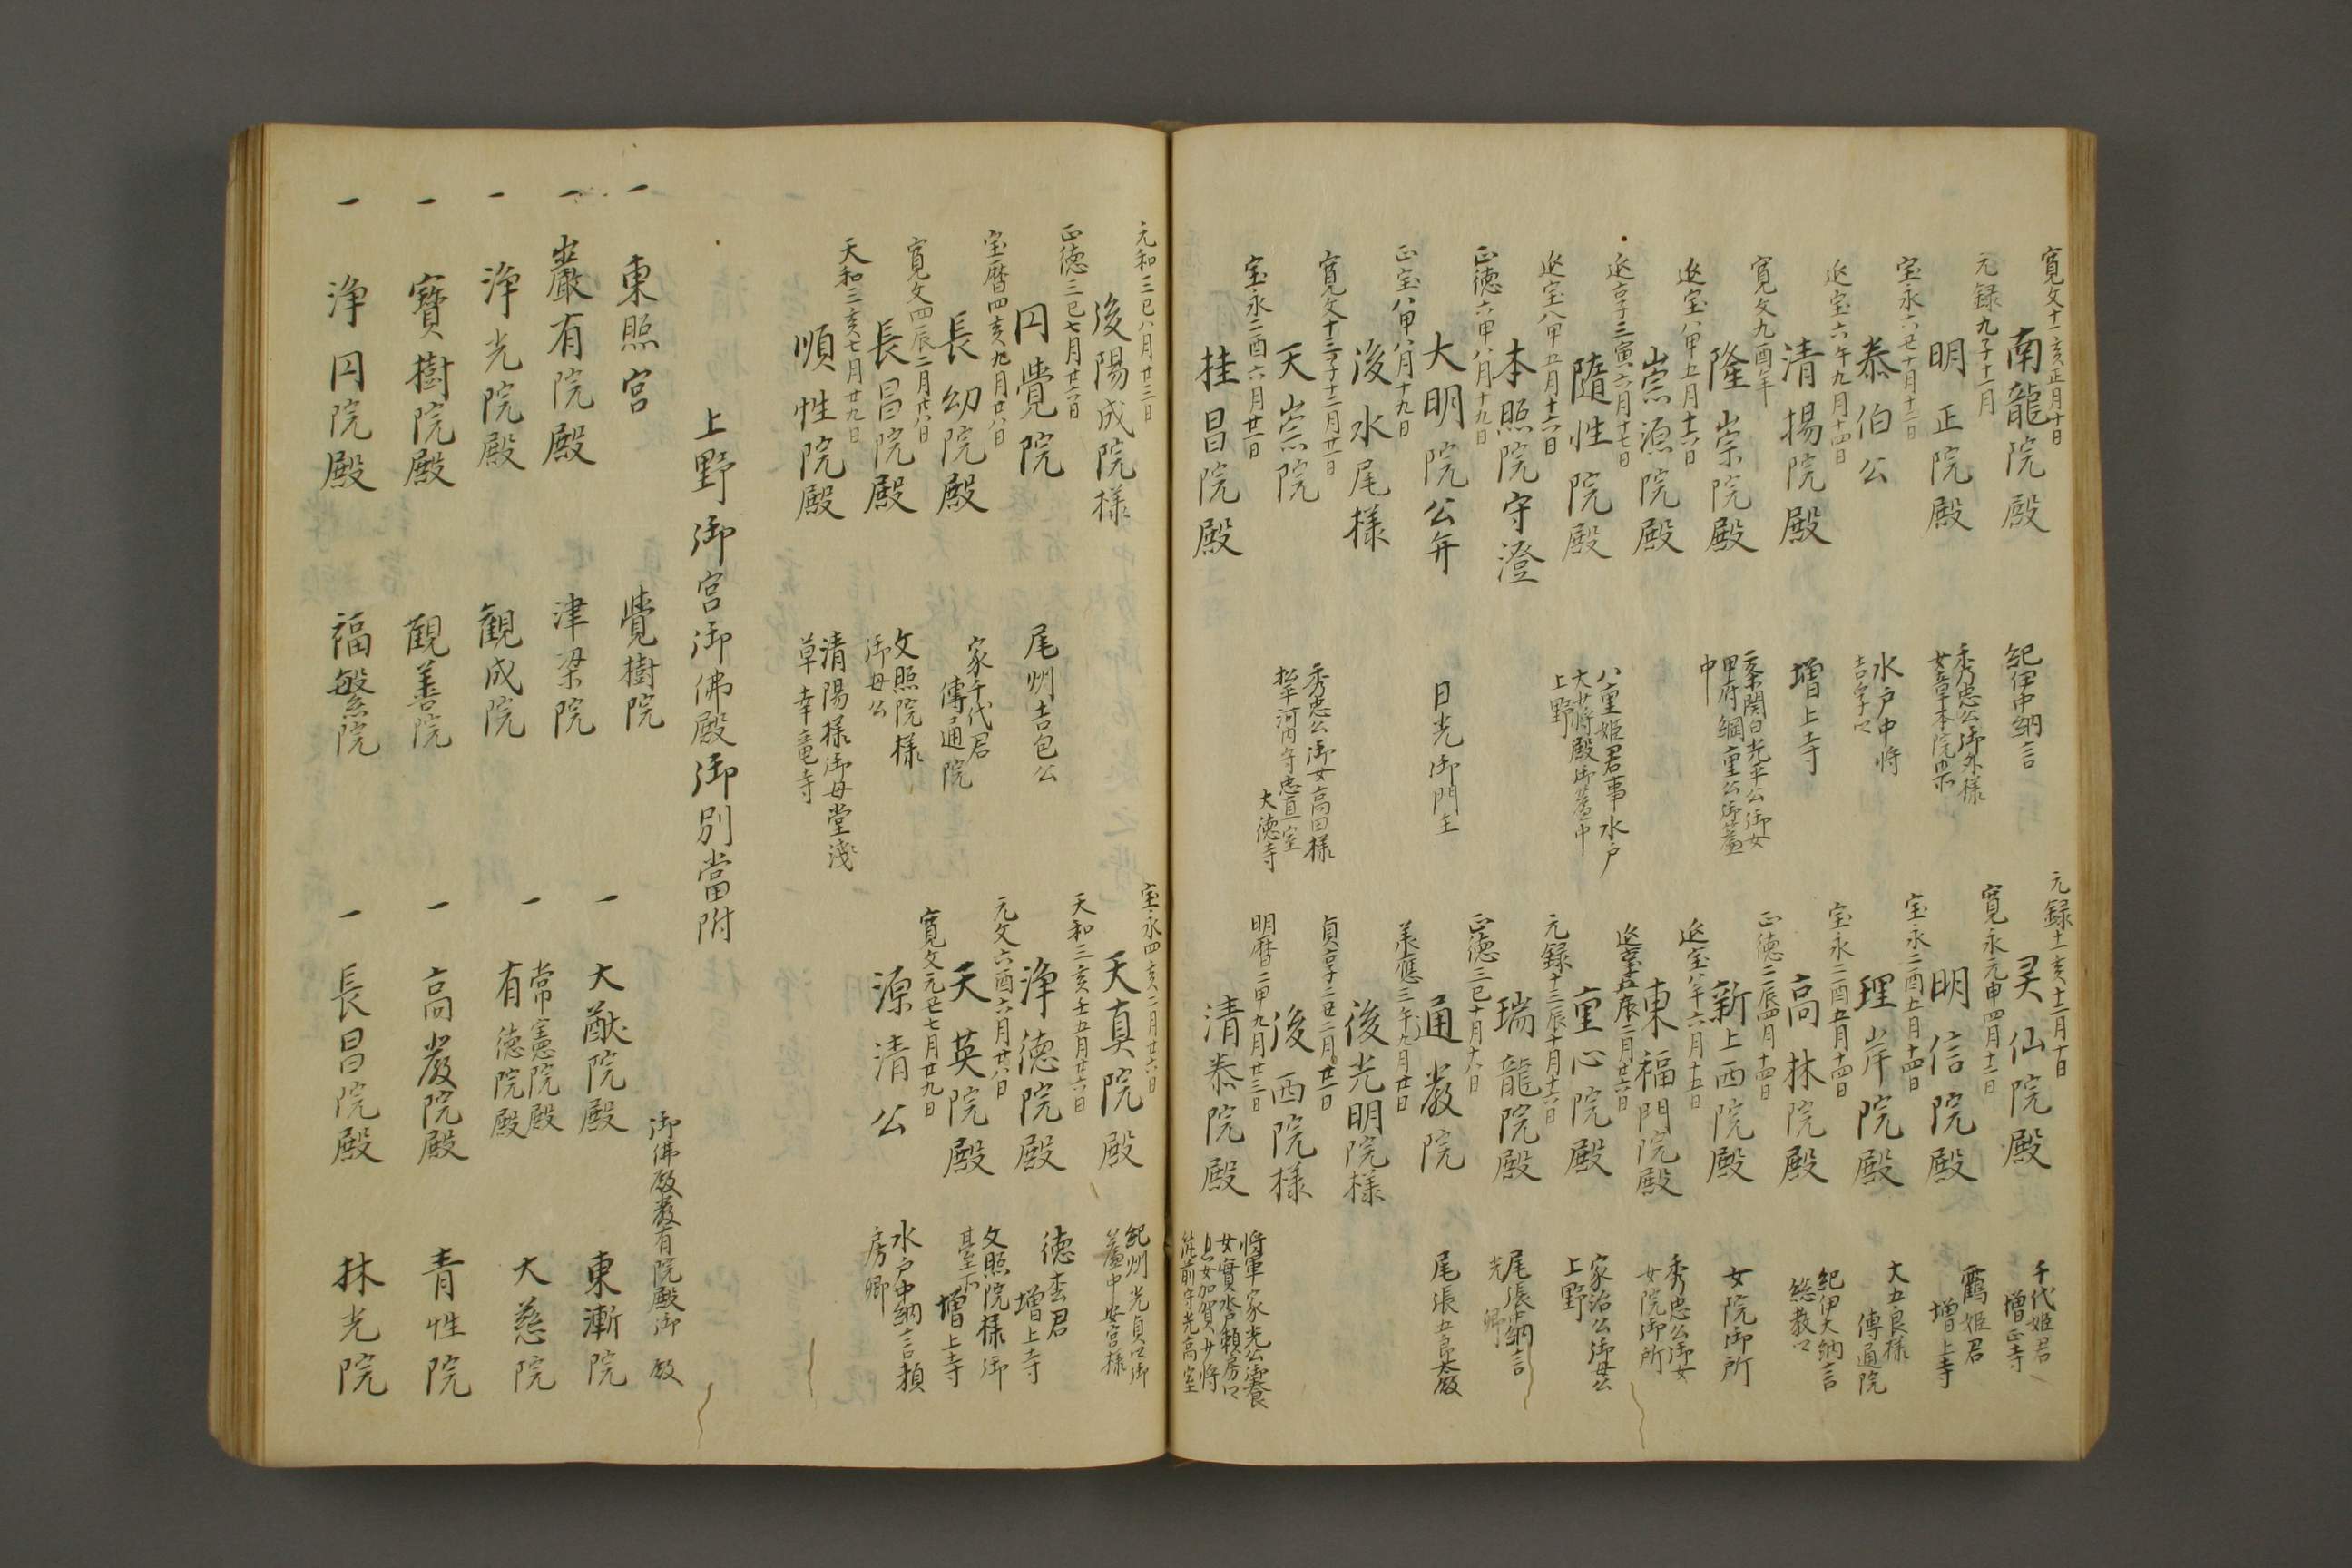 寛文十一亥正月十日
南龍院殿 紀伊中納言
元録九子十一月
明正院殿 秀忠公御外様
女一宮本院御所
宝永六丑十月十二日
恭伯公 水戸中将
吉孚卿
延宝六午九月十四日
清揚院殿 増上寺
寛文九酉年
隆崇院殿 二条関白光平公御女
甲府綱重公御簾
中
延宝八申五月十六日
崇源院殿
延享三寅六月十七日
随性院殿 八重姫君事水戸
大中将殿御簾中
上野
延宝八申五月十六日
本照院守澄
正徳六申八月十九日
大明院公弁 日光御門主
正宝八申八月十九日
後水尾様
寛文十二子十二月廿一日
天崇院 秀忠公御女高田様
松平三河守忠直室
宝永二酉六月廿一日
桂昌院殿 大徳寺
元録十一亥十二月十日
灵仙院殿 千代姫君
増上寺
寛永元申四月十二日
明信院殿 鶴姫君
増上寺
宝永二酉五月十四日
理岸院殿 大五良様
傳通院
宝永二酉五月十四日
高林院殿 紀伊大納言
総教卿
正徳二辰四月十四日
新上西院殿 女院御所
延宝八午六月十五日
東福門院殿 秀忠公御女
女院御所
延宝五辰二月廿六日
重心院殿 家治公御母公
上野
元録十三辰十月十六日
瑞龍院殿 尾張中納言
光卿
正徳三巳十月十八日
通巌院 尾張五良太殿
義應三午九月廿日
後光明院様
貞享二丑二月廿二日
後西院様
明暦二申九月廿三日
清泰院殿 将軍家光公御養
女実水戸頼房卿
息女加賀少将
筑前守光高室
元和三巳八月廿三日
後陽成院様
正徳三巳七月廿六日
円覺院 尾州吉包公
宝暦四亥九月廿八日
長幼院殿 家千代君
傳通院
寛文四辰二月廿八日
長昌院殿 文照院様
御母公
天和三亥七月廿九日
順性院殿 清陽様御母堂淺
草幸竜寺
宝永四亥二月廿六日
天真院殿 紀州光貞卿御
簾中安宮様
天和三亥壬五月廿六日
浄徳院殿 徳杢君
増上寺
元文六酉六月廿八日
天英院殿 文照院様御
臺所 増上寺
寛文元丑七月廿九日
源清公 水戸中納言頼
房卿
上野御宮御佛殿御別當附
一 東照宮 覺樹院
御佛殿巌有院殿御殿
一 大猷院殿 東漸院
一 巌有院殿 津梁院
一 常憲院殿
有徳院殿 大慈院
一 浄光院殿 観成院
一 高巌院殿 青性院
一 寶樹院殿 觀善院
一 長昌院殿 林光院
一 浄円院殿 福繁院